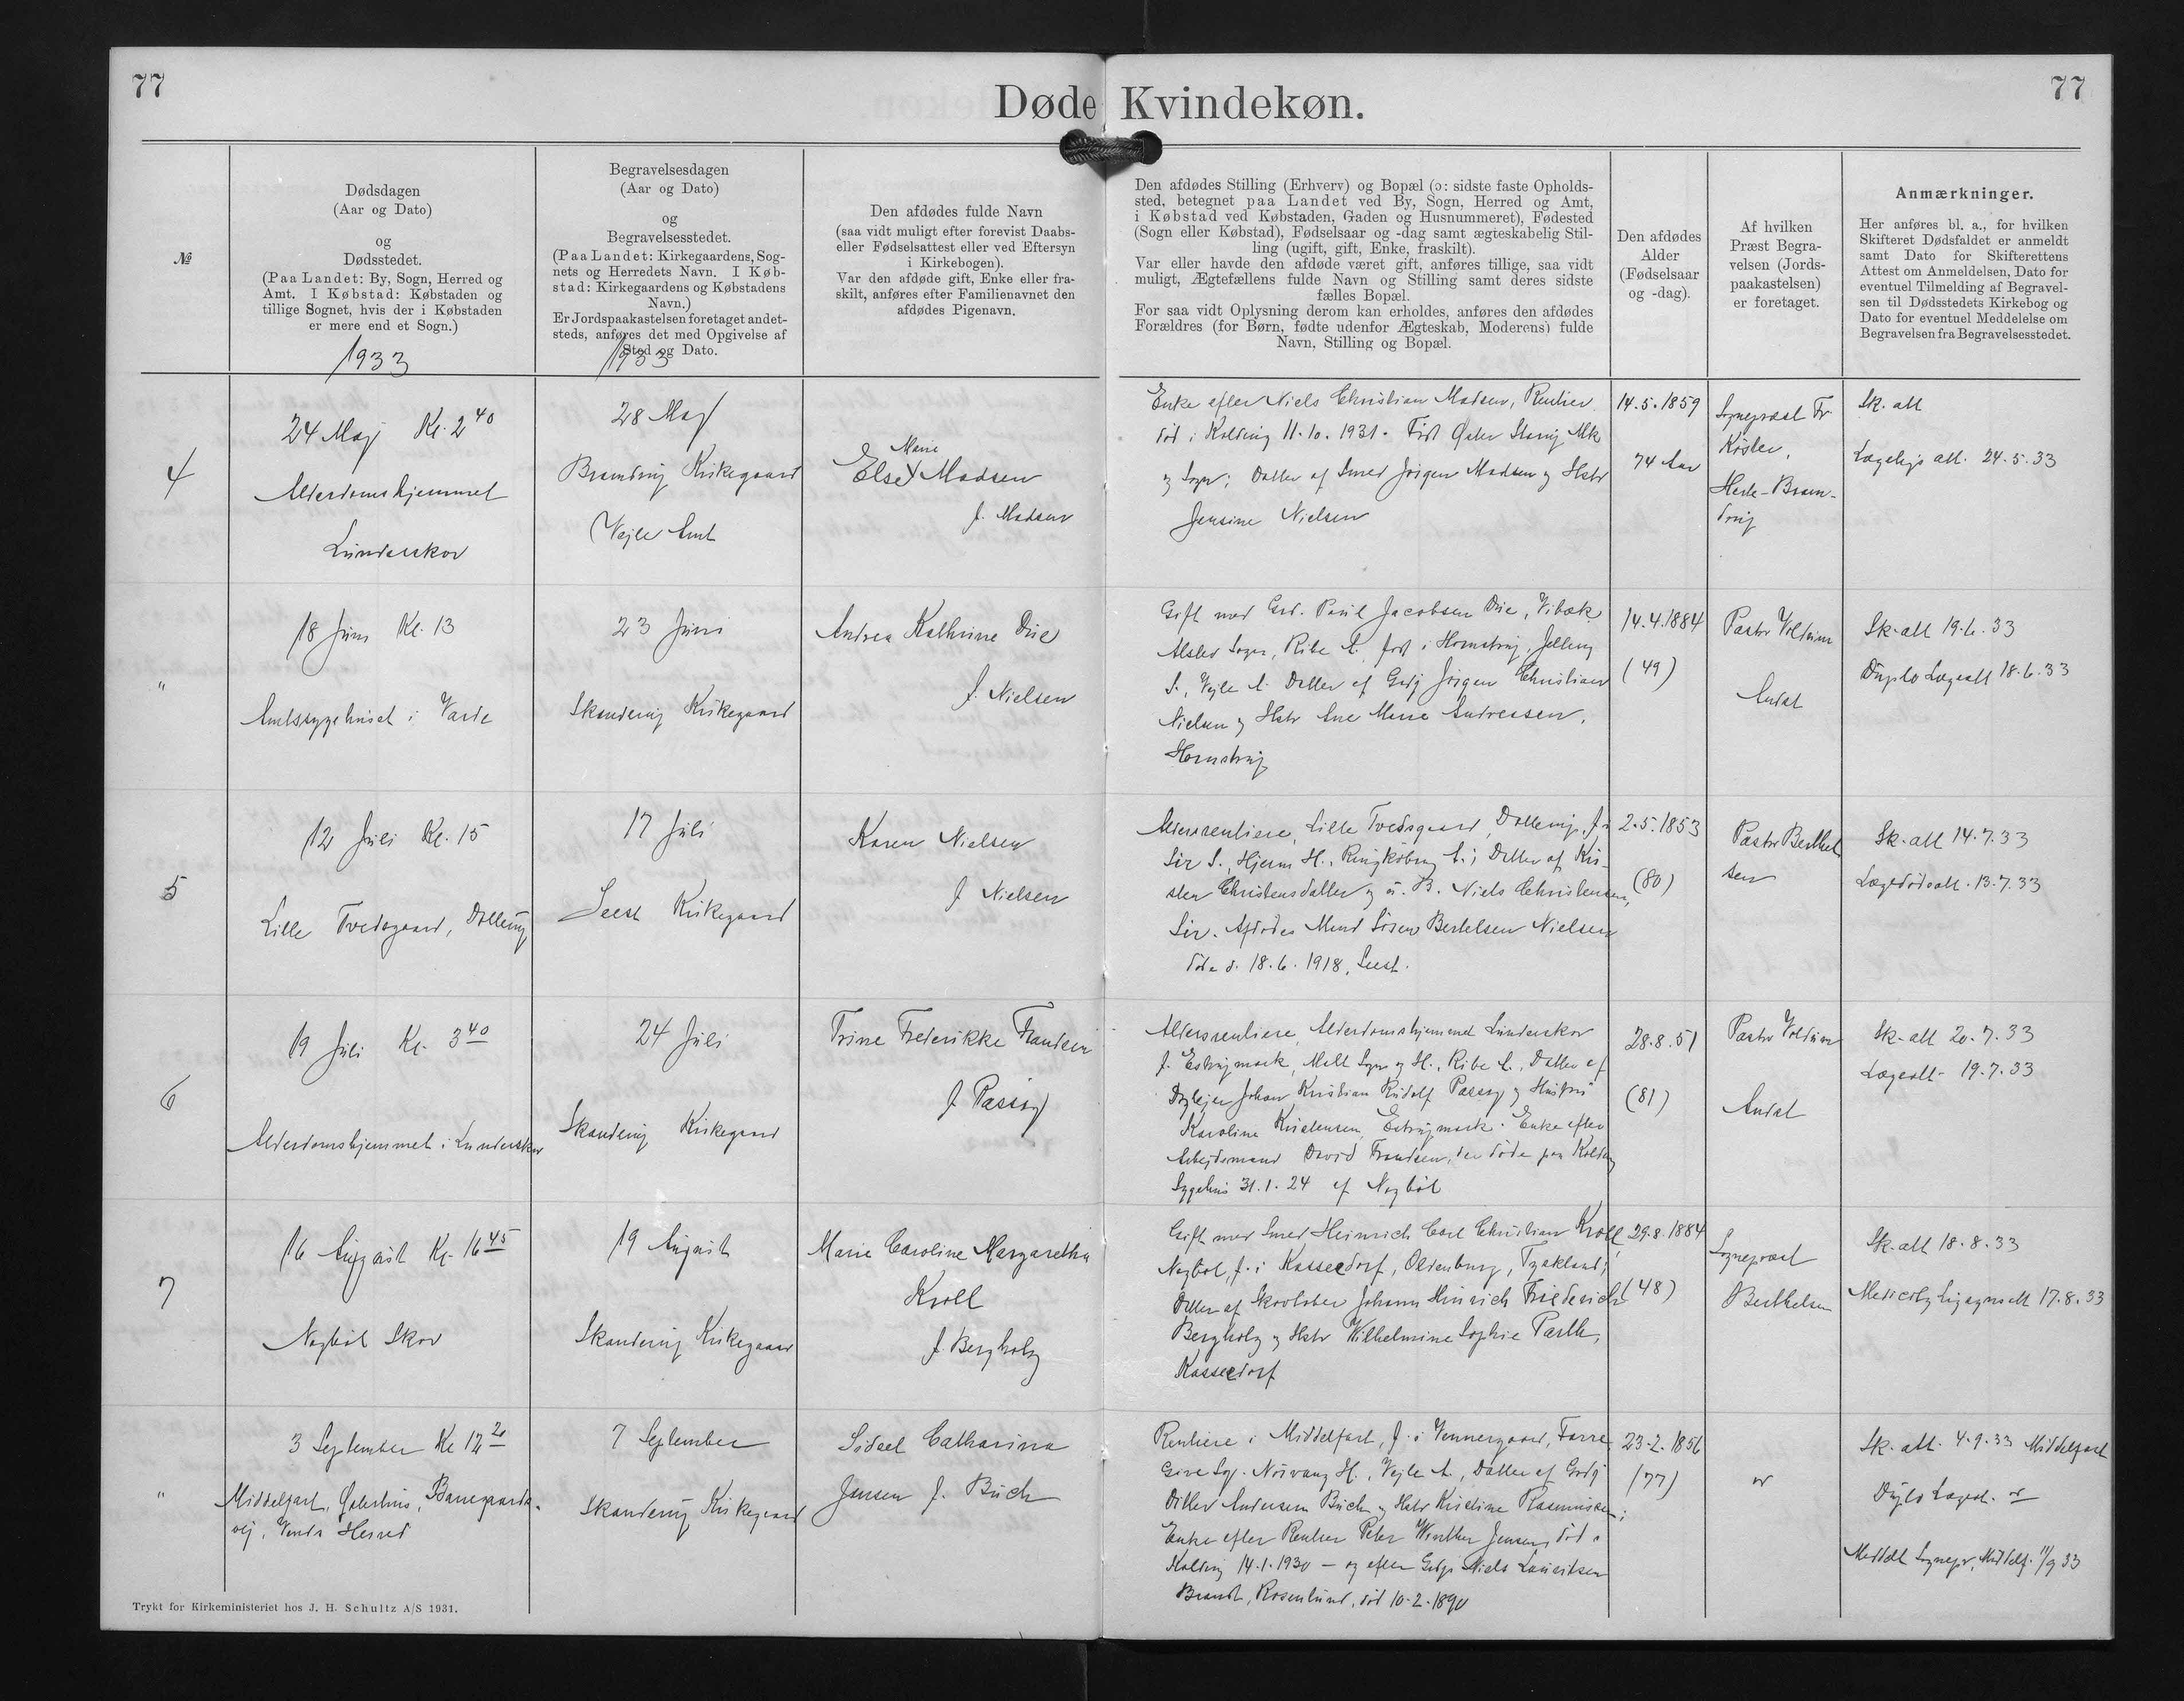 77
Døde Kvindekøn.
77
№
Dødsdagen
(Aar og Dato)
og
Dødsstedet.
(Paa Landet: By, Sogn, Herred og
Amt. I Købstad: Købstaden og
tillige Sognet, hvis der i Købstaden
er mere end et Sogn.)
1933
Begravelsesdagen
(Aar og Dato)
og
Begravelsesstedet.
(Paa Landet: Kirkegaardens, Sog-
nets og Herredets Navn. I Køb-
stad: Kirkegaardens og Købstadens
Navn.)
Er Jordspaakastelsen foretaget andet-
steds, anføres det med Opgivelse af
Sted og Dato.
1933
Den afdødes fulde Navn
(saa vidt muligt efter forevist Daabs-
eller Fødselsattest eller ved Eftersyn
i Kirkebogen).
Var den afdøde gift, Enke eller fra-
skilt, anføres efter Familienavnet den
afdødes Pigenavn.
Den afdødes Stilling (Erhverv) og Bopæl (ɔ: sidste faste Opholds-
sted, betegnet paa Landet ved By, Sogn, Herred og Amt,
i Købstad ved Købstaden, Gaden og Husnummeret), Fødested
(Sogn eller Købstad), Fødselsaar og -dag samt ægteskabelig Stil-
ling (ugift, gift, Enke, fraskilt).
Var eller havde den afdøde været gift, anføres tillige, saa vidt
muligt, Ægtefællens fulde Navn og Stilling samt deres sidste
fælles Bopæl.
For saa vidt Oplysning derom kan erholdes, anføres den afdødes
Forældres (for Børn, fødte udenfor Ægteskab, Moderens) fulde
Navn, Stilling og Bopæl.
Den afdødes
Alder
(Fødselsaar
og -dag).
Af hvilken
Præst Begra-
velsen (Jords-
paakastelsen)
er foretaget.
Anmærkninger.
Her anføres bl. a., for hvilken
Skifteret Dødsfaldet er anmeldt
samt Dato for Skifterettens
Attest om Anmeldelsen, Dato for
eventuel Tilmelding af Begravel-
sen til Dødsstedets Kirkebog og
Dato for eventuel Meddelelse om
Begravelsen fra Begravelsesstedet.
4
24 Maj Kl. 2 40
Alderdomshjemmet
Lunderskov
28 Maj
Bramdrup Kirkegaard
(Vejle Amt
Marie
Else Madsen
f. Madsen
Enke efter Niels Christian Madsen, Rentier
død i Kolding 11.10.1931. Født Øster Starup
og Sogn; Datter af Smed Jørgen Madsen og Hstr
Jensine Nielsen
14.5.1859
74 Aar
Sognepræst Fr.
Køster,
Harte-Bram-
drup
Sk. att
Lægeligs att. 24.5.33
"
18 Juni Kl. 13
Amtssygehuset i Varde
23 Juni
Skanderup Kirkegaard
Andrea Kathrine Due
f. Nielsen
Gift med Grd. Poul Jacobsen Due, Vibæk
Alslev Sogn, Ribe A. født i Hornstrup, Jelling
S., Vejle A. Datter af Grdj Jørgen Christian
Nielsen og Hstr Ane Marie Andreasen,
Hornstrup
14.4.1884
(49)
Pastor Voldum
Andst
Sk-att 19.6.33
Duplo Lægeatt 18.6.33
5
12 Juli Kl. 15
Lille Tvedsgaard, Dollerup
17 Juli
Seest Kirkegaard
Karen Nielsen
f Nielsen
Aldersrentiere, Lille Tvedsgaard, Dollerup, f. i
Sir S., Hjerm H., Ringkøbing A.; Datter af Kir-
sten Christensdatter og u. B. Niels Christensen,
Sir. Afdødes Mand Søren Bertelsen Nielsen
døde d. 18.6.1918, Seest.
2.5.1853
(80)
Pastor Berthel
sen
Sk-att 14.7.33
Lægedødsatt. 13.7.33
6
19 Juli Kl. 3 40
Alderdomshjemmet i Lunderskov
24 Juli
Skanderup Kirkegaard
Trine Frederikke Frandsen
f Passig
Aldersrentiere Alderdomshjemmet Lunderskov
f. Estrupmark, Malt Sogn og H., Ribe A., Datter af
Johan Kristian Rudolf Passig og Hustru
Karoline Kristensen, Estrupmark. Enke efter
Arbejdsmand David Frandsen, der døde paa Kolding
Sygehus 31.1.24 af Nagbøl
28.8.51
(81)
Pastor Voldum
Andst
Sk-att 20.7.33
Lægeatt- 19.7.33
7
16 August Kl. 16 45
Nagbøl Skov
19 August
Skanderup Kirkegaard
Marie Caroline Margaretha
Kroll
f Bergholz
Gift med Smed Heinrich Carl Christian Kroll,
Nagbøl, f. i Kasseedorf, Oldenburg, Tyskland;
Datter af Skovløber Johann Hinrich Friederich
Bergholz og Hstr Wilhelmine Sophie Parth,
Kasseedorf
29.8.1884
(48)
Sognepræst
Berthelsen
Sk-att 18.8.33
17.8.33
"
3 September Kl 12 20
Middelfart, Østerhus, Banegaards-
vej, Vends Herred
7 September
Skanderup Kirkegaard
Sidsel Catharina
Jensen f. Buch
Rentiere i Middelfart, f. i Vennergaard, Farre
Give Sogn. Nørvang H., Vejle A., Datter af Grdj
Ditlev Andersen Buch og Hstr Kirstine Rasmussen;
Enke efter Rentier Peter Winther Jensen, død i
Kolding 14.1.1930 — og efter Grdjr Niels Lauritsen
Brandt, Rosenlund, død 10-2-1890
23-2.1856
(77)
Sk. att. 4.9.33 Middelfart
Duplo Lægeatt.
Meddelt Sognepr, Middelf. 11/9 33
Trykt for Kirkeministeriet hos J. H. Schultz A/S 1931.